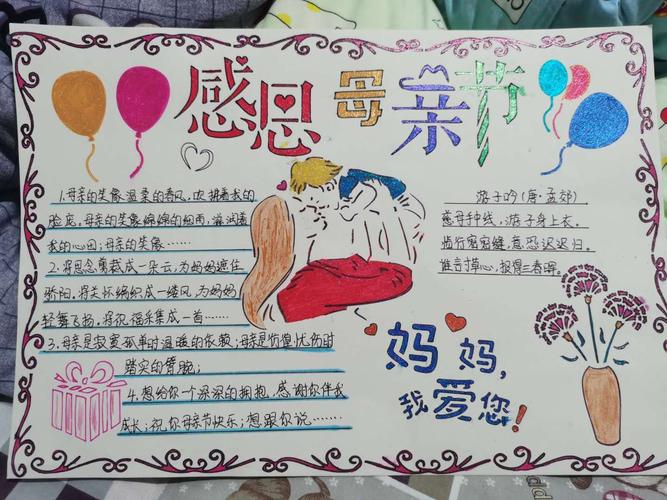 感恩母亲节
1.母亲的笑像温柔的春风,吹拂着我的
脸庞,母亲的笑像绵绵的细雨,滋润着
我的心田;母亲的笑像……
2.将思念剪裁成一朵云,为妈妈遮住
骄阳,将关怀编织成一缕风,为妈妈
轻舞飞扬,将祝福乐集成一首……
3.母亲是寂寞孤单时温暖的依赖;母亲是彷徨忧伤时
踏实的臂腕;
4.想给你一个深深的拥抱,感谢你伴我
成长;祝你母亲节快乐;想跟你说……
游子吟(唐·孟郊)
慈母手中线,游子身上衣。
临行密密缝,意恐迟迟归。
谁言寸草心,报得三春晖。
妈妈,
我爱您!